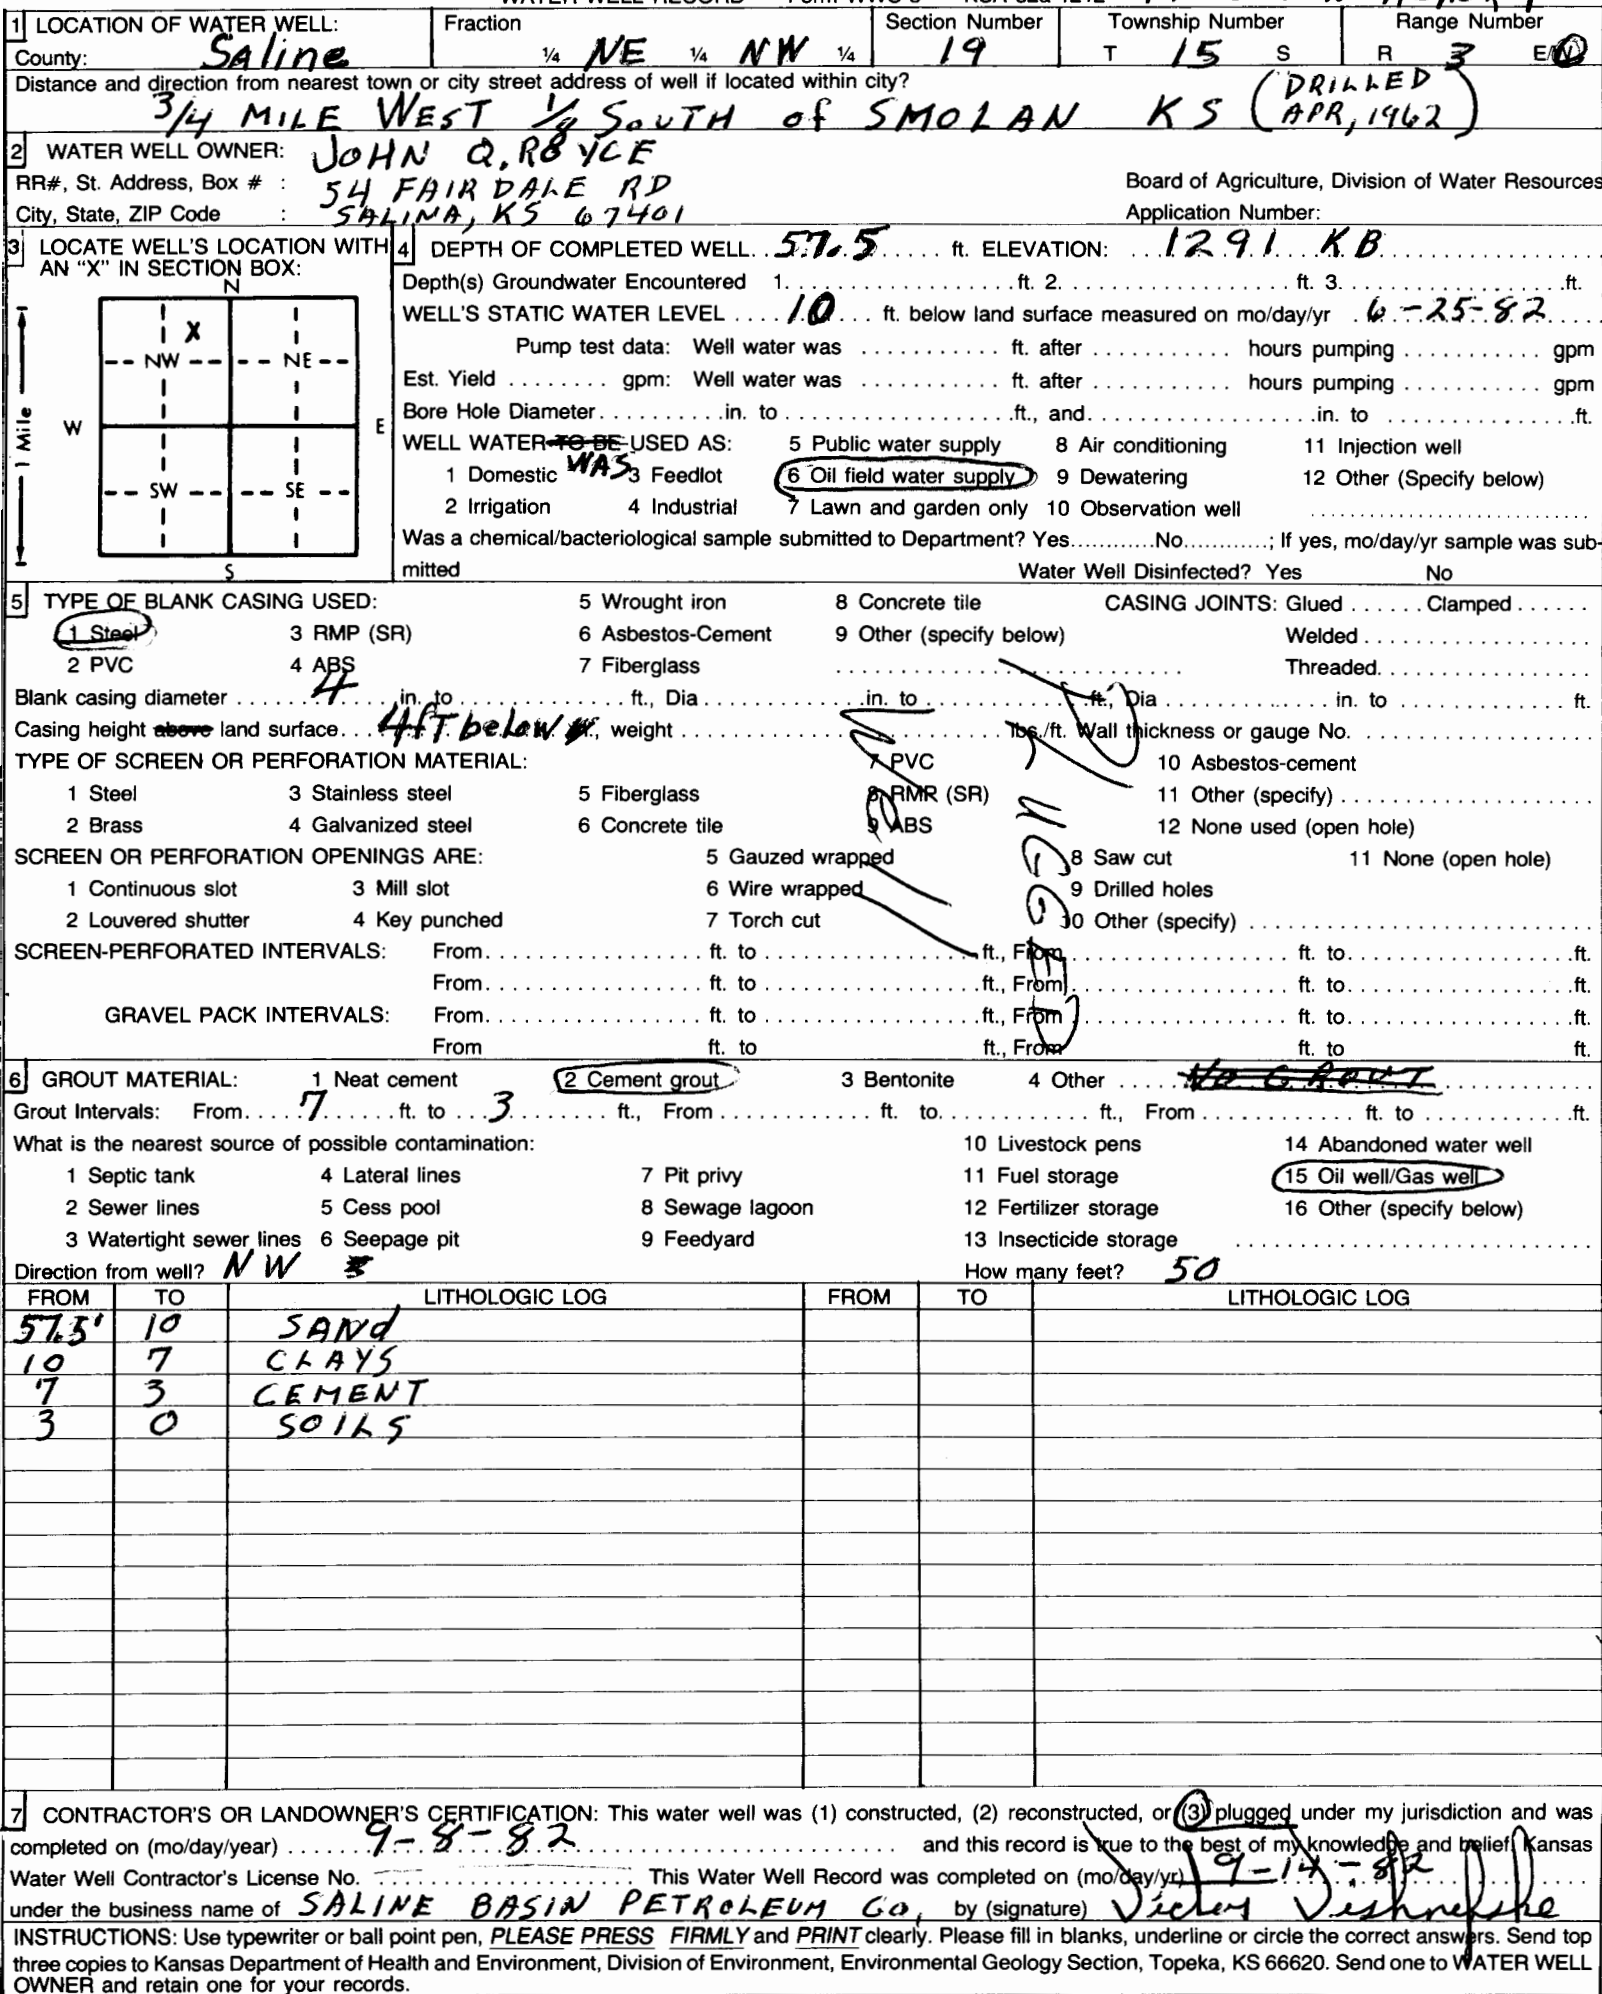 1 LOCATION OF WATER WELL: Fraction Section Number Township Number Range Number
County: Saline ¼ NE ¼ NW ¼ 19 T 15 S R 3 E/W
Distance and direction from nearest town or city street address of well if located within city?
3/4 MILE WEST 1/8 SOUTH of SMOLAN KS (DRILLED APR, 1962)
2 WATER WELL OWNER: JOHN Q. ROYCE
RR#, St. Address, Box # : 54 FAIRDALE RD Board of Agriculture, Division of Water Resources
City, State, ZIP Code : SALINA, KS 67401 Application Number:
3 LOCATE WELL'S LOCATION WITH AN "X" IN SECTION BOX:
N
X
NW NE
W E
1 Mile
SW SE
S
4 DEPTH OF COMPLETED WELL. 57.5 ft. ELEVATION: 1291 KB
Depth(s) Groundwater Encountered 1. ft. 2. ft. 3. ft.
WELL'S STATIC WATER LEVEL 10 ft. below land surface measured on mo/day/yr 6-25-82
Pump test data: Well water was ft. after hours pumping gpm
Est. Yield gpm: Well water was ft. after hours pumping gpm
Bore Hole Diameter in. to ft., and in. to ft.
WELL WATER TO BE USED AS: 5 Public water supply 8 Air conditioning 11 Injection well
1 Domestic WAS 3 Feedlot 6 Oil field water supply 9 Dewatering 12 Other (Specify below)
2 Irrigation 4 Industrial 7 Lawn and garden only 10 Observation well
Was a chemical/bacteriological sample submitted to Department? Yes No ; If yes, mo/day/yr sample was sub-
mitted Water Well Disinfected? Yes No
5 TYPE OF BLANK CASING USED: 5 Wrought iron 8 Concrete tile CASING JOINTS: Glued Clamped
1 Steel 3 RMP (SR) 6 Asbestos-Cement 9 Other (specify below) Welded
2 PVC 4 ABS 7 Fiberglass Threaded.
Blank casing diameter 4 in. to ft., Dia in. to ft., Dia in. to ft.
Casing height above land surface. 4 FT below , weight lbs./ft. Wall thickness or gauge No.
TYPE OF SCREEN OR PERFORATION MATERIAL: 7 PVC 10 Asbestos-cement
1 Steel 3 Stainless steel 5 Fiberglass 8 RMR (SR) 11 Other (specify)
2 Brass 4 Galvanized steel 6 Concrete tile 9 ABS 12 None used (open hole)
SCREEN OR PERFORATION OPENINGS ARE: 5 Gauzed wrapped 8 Saw cut 11 None (open hole)
1 Continuous slot 3 Mill slot 6 Wire wrapped 9 Drilled holes
2 Louvered shutter 4 Key punched 7 Torch cut 10 Other (specify)
SCREEN-PERFORATED INTERVALS: From ft. to ft., From ft. to ft.
From ft. to ft., From ft. to ft.
GRAVEL PACK INTERVALS: From ft. to ft., From ft. to ft.
From ft. to ft., From ft. to ft.
Well
PLUGGED
6 GROUT MATERIAL: 1 Neat cement 2 Cement grout 3 Bentonite 4 Other NO GROUT
Grout Intervals: From 7 ft. to 3 ft., From ft. to ft., From ft. to ft.
What is the nearest source of possible contamination: 10 Livestock pens 14 Abandoned water well
1 Septic tank 4 Lateral lines 7 Pit privy 11 Fuel storage 15 Oil well/Gas well
2 Sewer lines 5 Cess pool 8 Sewage lagoon 12 Fertilizer storage 16 Other (specify below)
3 Watertight sewer lines 6 Seepage pit 9 Feedyard 13 Insecticide storage
Direction from well? NW How many feet? 50
FROM TO LITHOLOGIC LOG FROM TO LITHOLOGIC LOG
57.5' 10 SANd
10 7 CLAYS
7 3 CEMENT
3 0 SOILS
7 CONTRACTOR'S OR LANDOWNER'S CERTIFICATION: This water well was (1) constructed, (2) reconstructed, or (3) plugged under my jurisdiction and was
completed on (mo/day/year) 9-8-82 and this record is true to the best of my knowledge and belief. Kansas
Water Well Contractor's License No. This Water Well Record was completed on (mo/day/yr) 9-14-82
under the business name of SALINE BASIN PETROLEUM Co, by (signature)
INSTRUCTIONS: Use typewriter or ball point pen, PLEASE PRESS FIRMLY and PRINT clearly. Please fill in blanks, underline or circle the correct answers. Send top
three copies to Kansas Department of Health and Environment, Division of Environment, Environmental Geology Section, Topeka, KS 66620. Send one to WATER WELL
OWNER and retain one for your records.